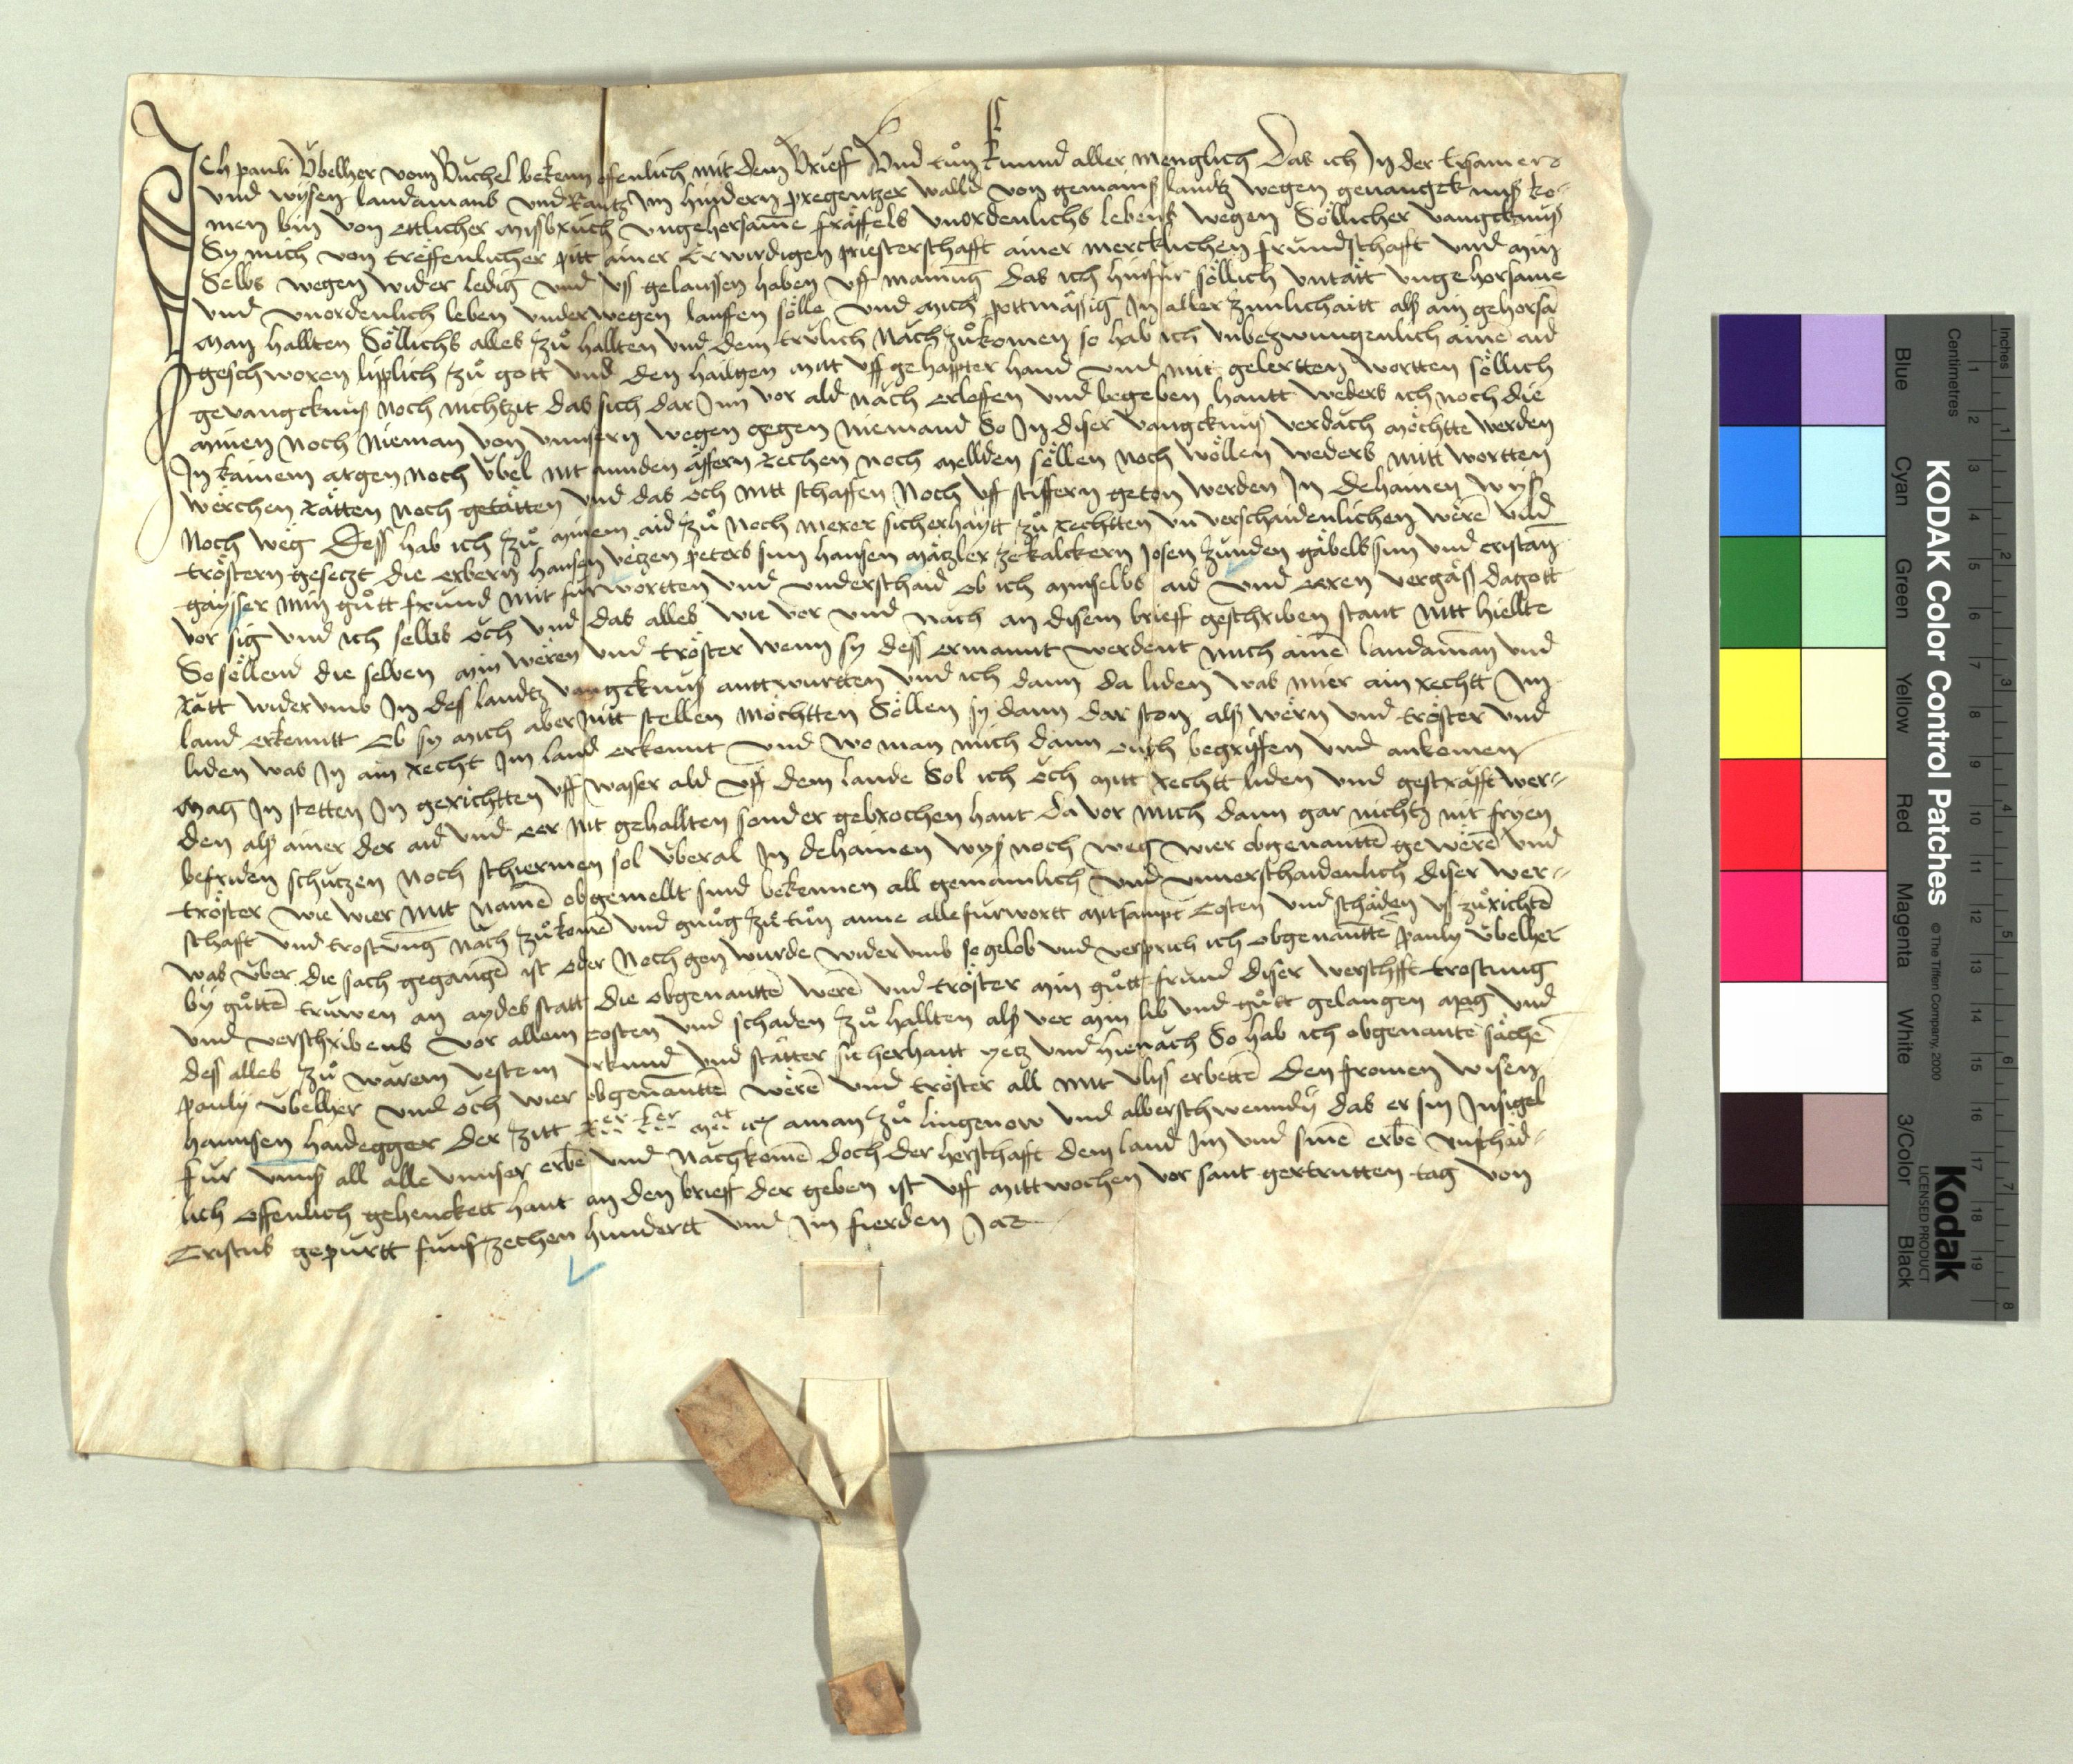 Ich pauli Übelher vom Büchel bekenn offenlich mit dem Brieff Und tůn kunnd aller menglich Das ich In der ersamen
und wysen landamans und Rautz Im hindern pregentzer walld von gemains landtz wegen gevangcknus ko-
men bin von ettlicher missbruch ungehorsamē fräffels unordenlichs lebens wegen Söllicher vangcknus
Sy mich von treffenlicher pitt ainer Erwirdigen priesterschafft ainer mercklichen frundschafft und min
Selbs wegen wider ledig und uss gelaussen haben uff manung das ich hinfür söllich untätt ungehorsame
und unordenlich leben underwegen laussen sölle und mich pottmässig In aller zimlichaitt als ain gehorsā
man hallten Söllichs alles zů hallten und dem trülich Nach zůkomen so hab ich unbezwungenlich ainē aid
geschworen lipplich zů gott und den hailgen mitt uffgehappter hand und mit gelertten wortten söllich
gevangcknus noch nichtzit das sich dar Inn vor ald nach erloffen und begeben hautt weders ich noch die
minen noch Nieman von unnsern wegen gegen niemand So In diser vangcknus verdäch möchtte werden
In kainem argen noch übel nit annden äffern Rechen noch mellden söllen noch wöllen weders mitt wortten
werchen Rätten noch getätten und das och nitt schaffen Noch uff stifftern geton werden In dehainen wys
Noch weg Dess hab ich zů minem aid zů noch merer sicherhaytt zů rechtten un verschaidenlichen werē und
tröstern gesetzt die erbern hansen vetzen peters sun hansen mätzler ze kalckern Josen zünden gäbels sun und cristan
gaysser min gůtt frund mit fürwortten und underschaid ob ich minselbs aid und eeren vergäss da gott
vor sig und ich selbs och und das alles wie vor und nach an disem brieff geschriben stant nitt hiellte
So söllend die selben min weren und tröster wenn sy dess ermannt werdent mich ainē landaman und
Rätt widerumb In dess landtz vangcknus anttwurtten und ich dann da liden was mier ain rechtt Im
land erkenntt Ob sy mich aber nitt stellen möchtten Söllen sy dann dar ston als wern und tröster und
liden was In ain recht Im land erkennt und wo man mich dann ouch begriffen und ankomen
mag In stetten In gerichtten uff wasser ald uff dem lande Sol ich och mitt rechtt liden und gesträfft wer-
den als ainer der aid und eer nit gehallten sonder gebrochen haut da vor mich dann gar nichtz nit fryen
befriden schutzen Noch schiermen sol überal In dehainen wys noch weg wier obgenanttē gewerē und
tröster wie wier mit Namē obgemellt sind bekennen all gemainlich und unverschaidenlich diser wer-
schaft und trostung nach zůkomē und gnůg ze tůn anne alle fürwortt mitsampt Costen und schäden us zůrichtē
was über die sach gegangē ist oder Noch gen wurde widerumb so gelob und versprich ich obgenanttē pauly übelher
by gůttē trüwen an aydes statt die obgenanttē werē und tröster min gůtt frund diser werschfft trostung
und verschribens vor allem costen und schaden zů hallten als ver min lib und gůtt gelangen mag und
dess alles zů warem vestem urkund und stätter sicherhaitt yetz und hienach So hab ich obgenante sächē
pauly übelher und och wier obgenanttē werē und tröster all mit vlyss erbettē den fromen wisen
hannsen haidegger der zitt aman zů lingenow und alberschwenndy das er sin Insigel
für unns all alle unnser erbē und Nachkomē doch der herschafft dem land Im und sinē erbē unschäd-
lich offenlich gehenckett haut an den brieff der geben ist uff mittwochen vor sant gertrutten tag von
Cristus gepürtt funfzechen hundertt und Im fierden Jar
KODAK Color Control Patches © The Tiffen Company, 2000
Kodak
LICENSED PRODUCT
Inches
Centimetres
Blue Cyan Green Yellow Red Magenta White 3/Color Black
1 2 3 4 5 6 7 8 9 10 11 12 13 14 15 16 17 18 19
1 2 3 4 5 6 7 8